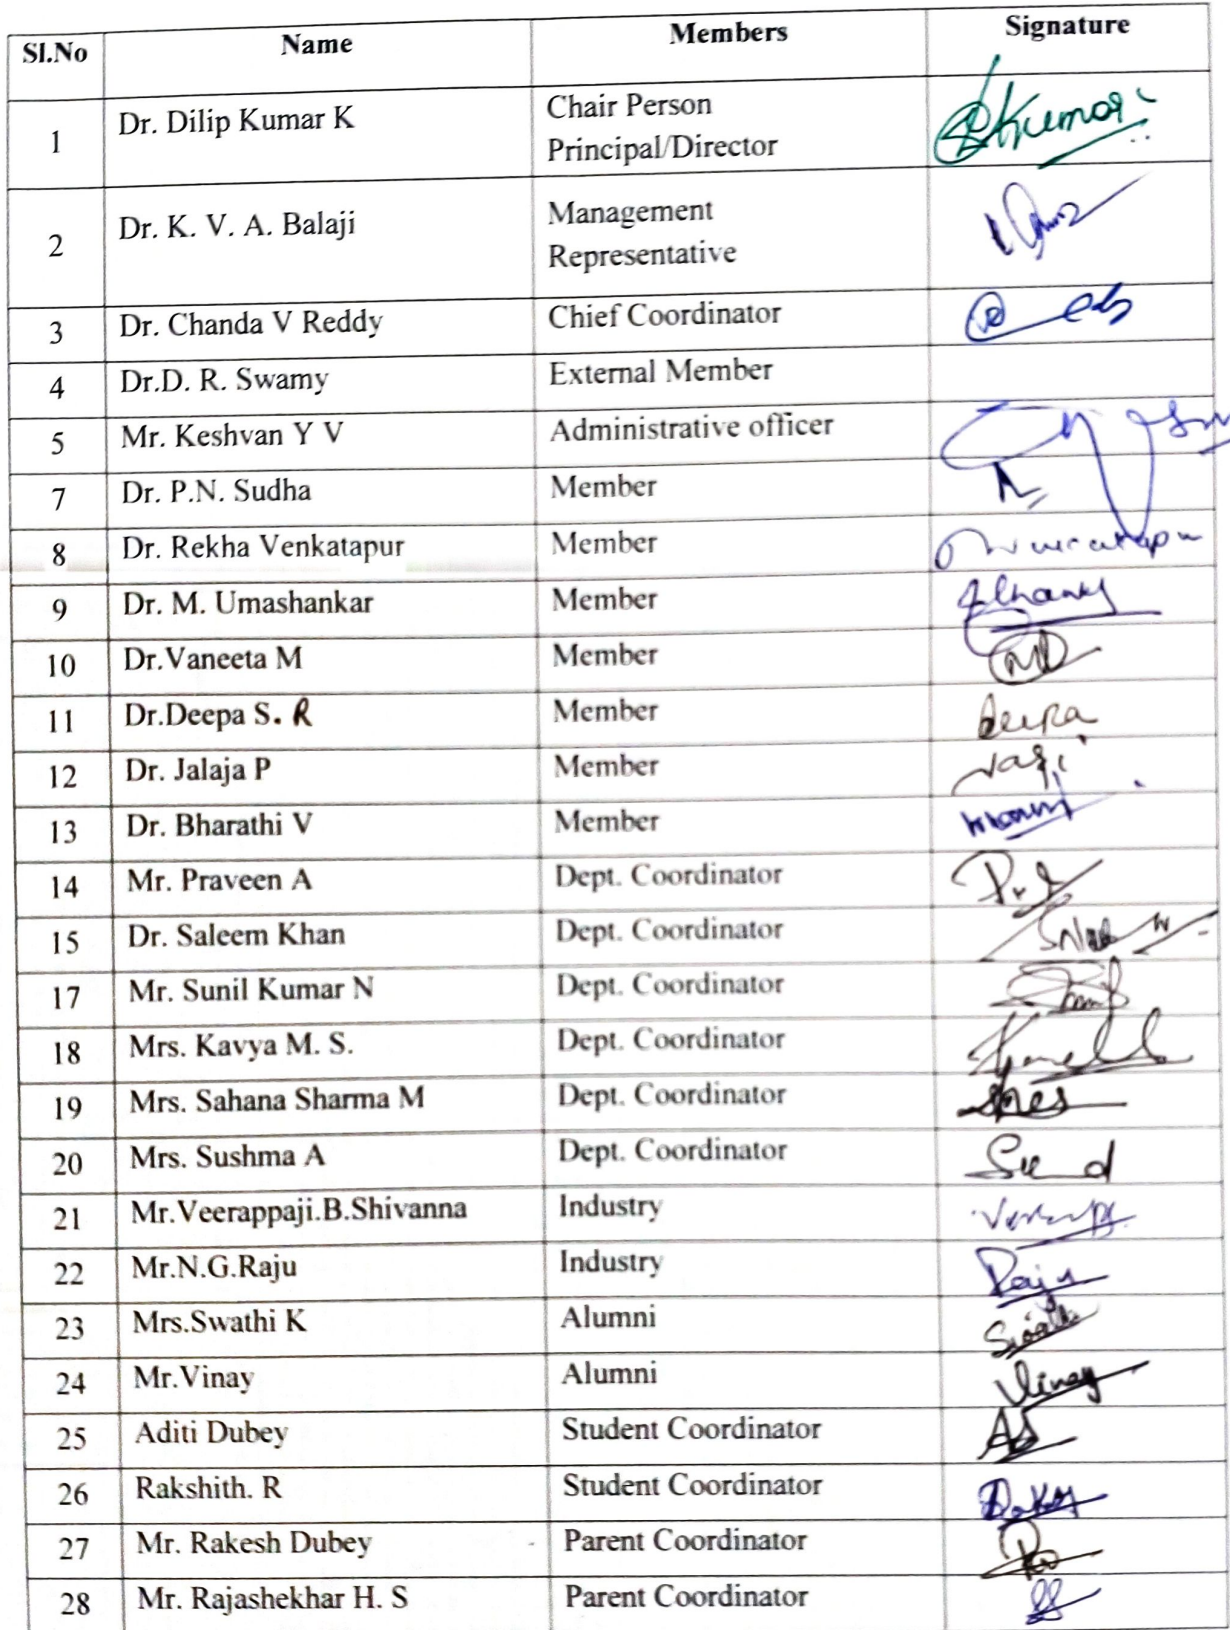 Sl.No Name Members Signature
1 Dr. Dilip Kumar K Chair Person
Principal/Director
2 Dr. K. V. A. Balaji Management
Representative
3 Dr. Chanda V Reddy Chief Coordinator
4 Dr.D. R. Swamy External Member
5 Mr. Keshvan Y V Administrative officer
7 Dr. P.N. Sudha Member
8 Dr. Rekha Venkatapur Member
9 Dr. M. Umashankar Member
10 Dr.Vaneeta M Member
11 Dr.Deepa S. R Member
12 Dr. Jalaja P Member
13 Dr. Bharathi V Member
14 Mr. Praveen A Dept. Coordinator
15 Dr. Saleem Khan Dept. Coordinator
17 Mr. Sunil Kumar N Dept. Coordinator
18 Mrs. Kavya M. S. Dept. Coordinator
19 Mrs. Sahana Sharma M Dept. Coordinator
20 Mrs. Sushma A Dept. Coordinator
21 Mr.Veerappaji.B.Shivanna Industry
22 Mr.N.G.Raju Industry Raju
23 Mrs.Swathi K Alumni
24 Mr.Vinay Alumni Vinay
25 Aditi Dubey Student Coordinator
26 Rakshith. R Student Coordinator
27 Mr. Rakesh Dubey Parent Coordinator
28 Mr. Rajashekhar H. S Parent Coordinator